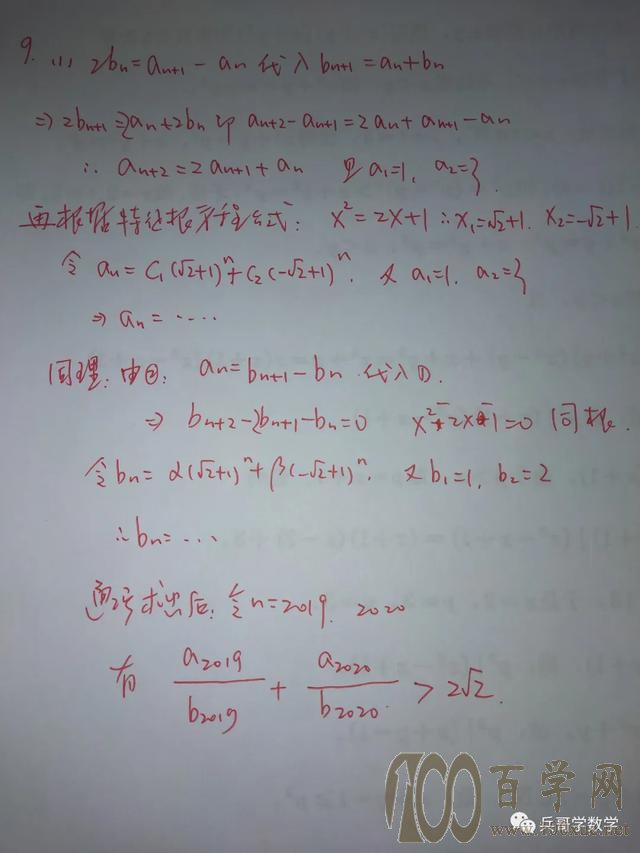 9. (1) 2bn = an+1 - an 代入 bn+1 = an + bn
⇒ 2bn+1 = 2an + 2bn 即 an+2 - an+1 = 2an + an+1 - an
∴ an+2 = 2an+1 + an 且 a1=1, a2=3.
再根据特征根方程公式: x² = 2x+1 ∴ x1=√2+1. x2=-√2+1
令 an = C1(√2+1)ⁿ + C2(-√2+1)ⁿ. 又 a1=1. a2=3
⇒ an = ....
同理: 由②: an = bn+1 - bn 代入①.
⇒ bn+2 - 2bn+1 - bn = 0 x² - 2x - 1 = 0 同根.
令 bn = α(√2+1)ⁿ + β(-√2+1)ⁿ. 又 b1=1, b2=2
∴ bn = ...
通项求出后: 令 n = 2019. 2020
有 a2019/b2019 + a2020/b2020 > 2√2.
100百学网
兵哥学数学